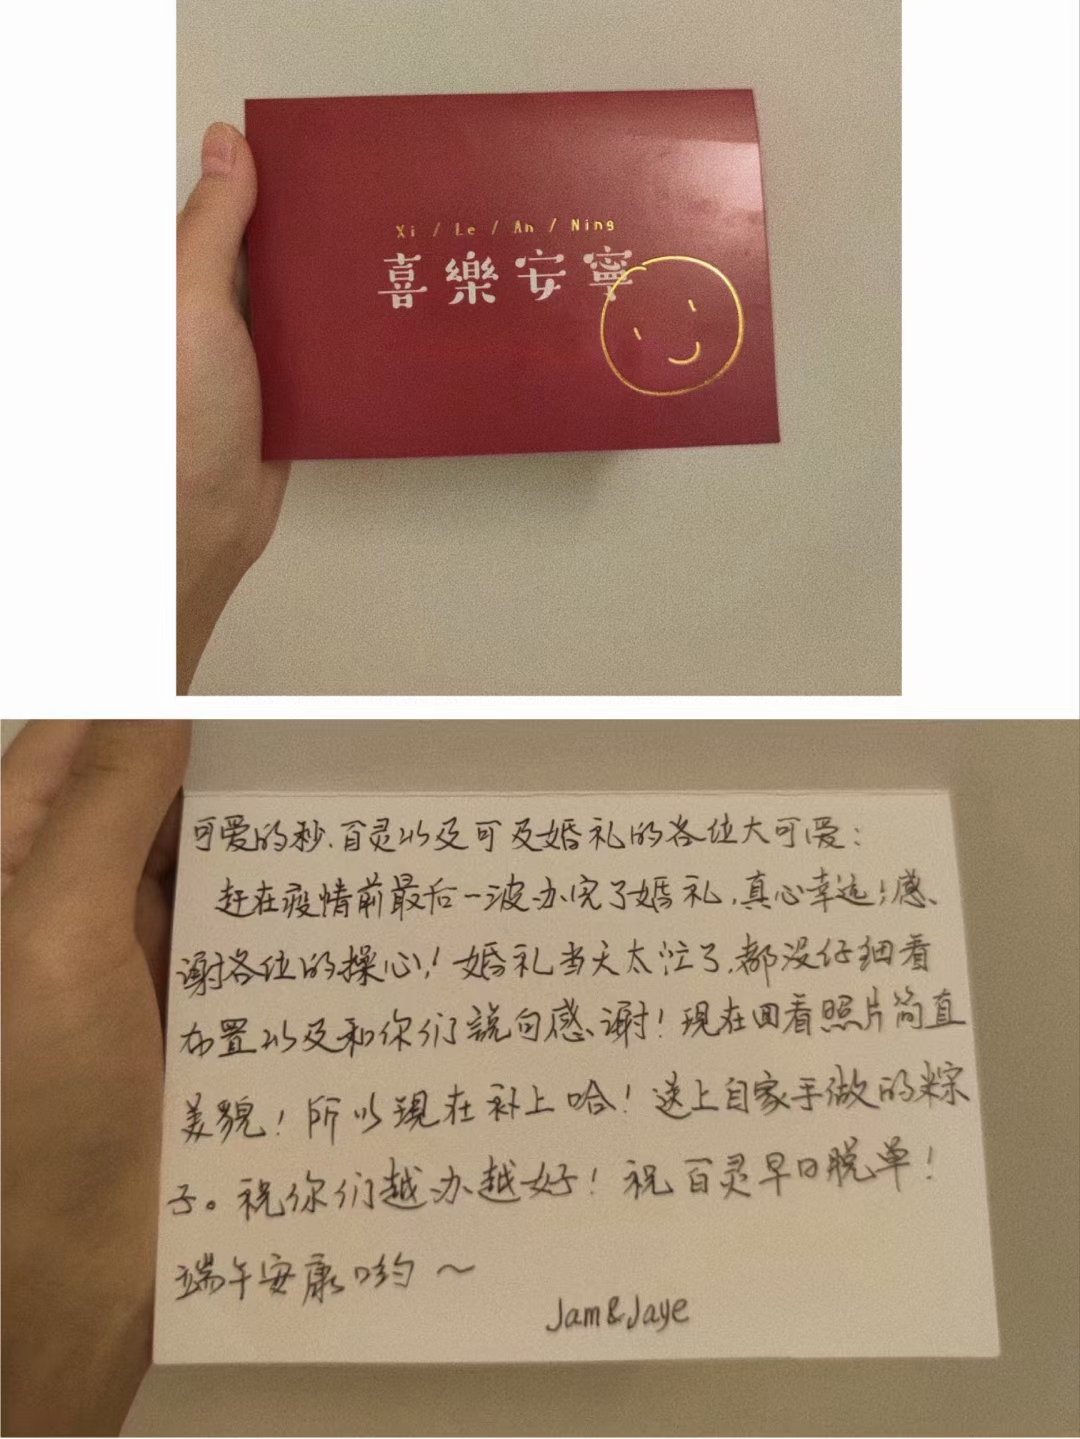 Xi / Le / An / Ning
喜樂安寧
可爱的秒、百灵以及可及婚礼的各位大可爱：
赶在疫情前最后一波办完了婚礼，真心幸运！感
谢各位的操心！婚礼当天太忙了，都没仔细看
布置以及和你们說句感谢！現在回看照片简直
美貌！所以現在补上哈！送上自家手做的粽
子。祝你们越办越好！祝百灵早日脱单！
端午安康哟～
Jam&Jaye